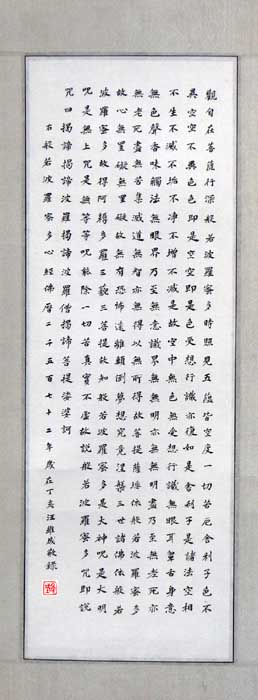 觀自在菩薩行深般若波羅蜜多時照見五蘊皆空度一切苦厄舍利子色不
異空空不異色色即是空空即是色受想行識亦復如是舍利子是諸法空相
不生不滅不垢不淨不增不減是故空中無色無受想行識無眼耳鼻舌身意
無色聲香味觸法無眼界乃至無意識界無無明亦無無明盡乃至無老死亦
無老死盡無苦集滅道無智亦無得以無所得故菩提薩埵依般若波羅蜜多
故心無罣礙無罣礙故無有恐怖遠離顛倒夢想究竟涅槃三世諸佛依般若
波羅蜜多故得阿耨多羅三藐三菩提故知般若波羅蜜多是大神咒是大明
咒是無上咒是無等等咒能除一切苦真實不虛故說般若波羅蜜多咒即說
咒曰揭諦揭諦波羅揭諦波羅僧揭諦菩提娑婆訶
右般若波羅蜜多心經佛曆二千五百七十二年歲在丁亥汪維成敬錄